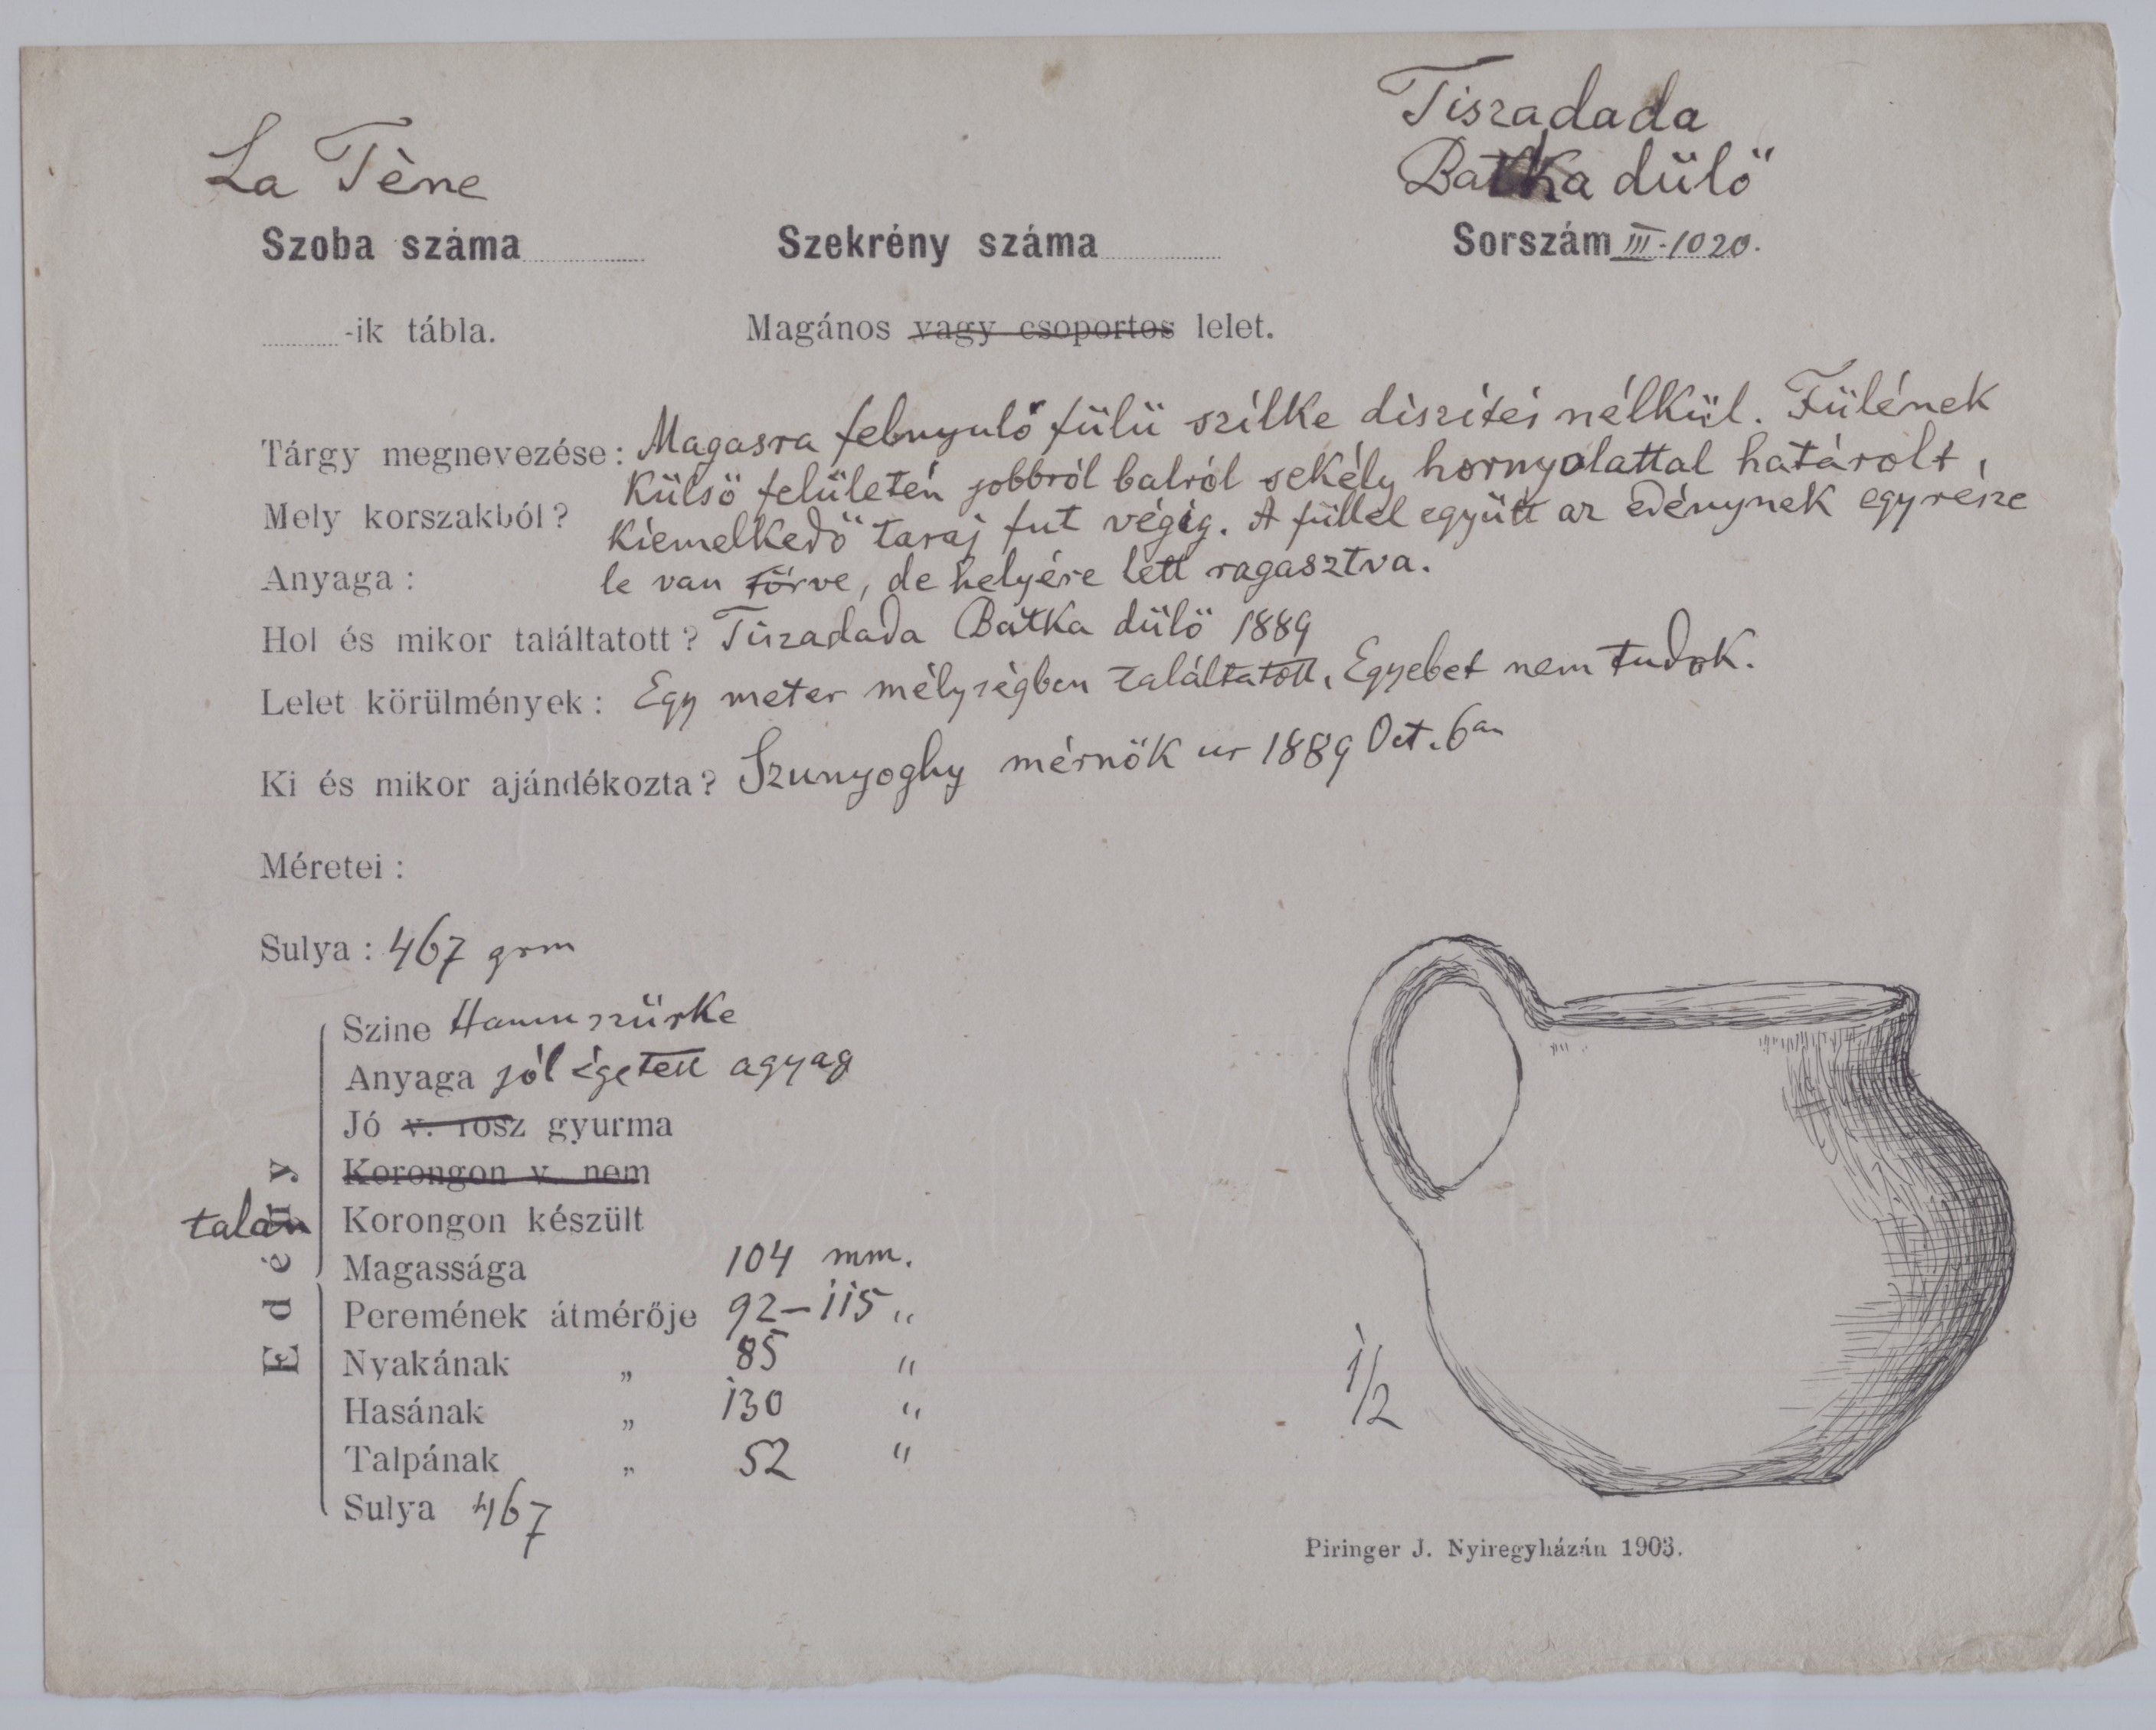 Tiszadada
La Tène
Batka dülö
Szoba száma Szekrény száma Sorszám III.-1020.
-ik tábla. Magános vagy csoportos lelet.
Tárgy megnevezése: Magasra felnyuló fülü szilke diszités nélkül. Fülének
külső felületén jobbról balról sekély hornyolattal határolt,
Mely korszakból?
kiemelkedő taraj fut végig. A füllel együtt az edénynek egy része
Anyaga: le van törve, de helyére lett ragasztva.
Hol és mikor találtatott? Tiszadada Batka dülö 1889
Lelet körülmények: Egy meter mélységben találtatott. Egyebet nem tudok.
Ki és mikor ajándékozta? Szunyoghy mérnök ur 1889 Oct. 6an
Méretei:
Sulya: 467 grm
Edény
Szine Hamuszürke
Anyaga jól égetett agyag
Jó v. rosz gyurma
Korongon v. nem
talán Korongon készült
Magassága 104 mm.
Peremének átmérője 92–115 "
Nyakának " 85 "
Hasának " 130 "
Talpának " 52 "
Sulya 467
1/2
Piringer J. Nyiregyházán 1903.